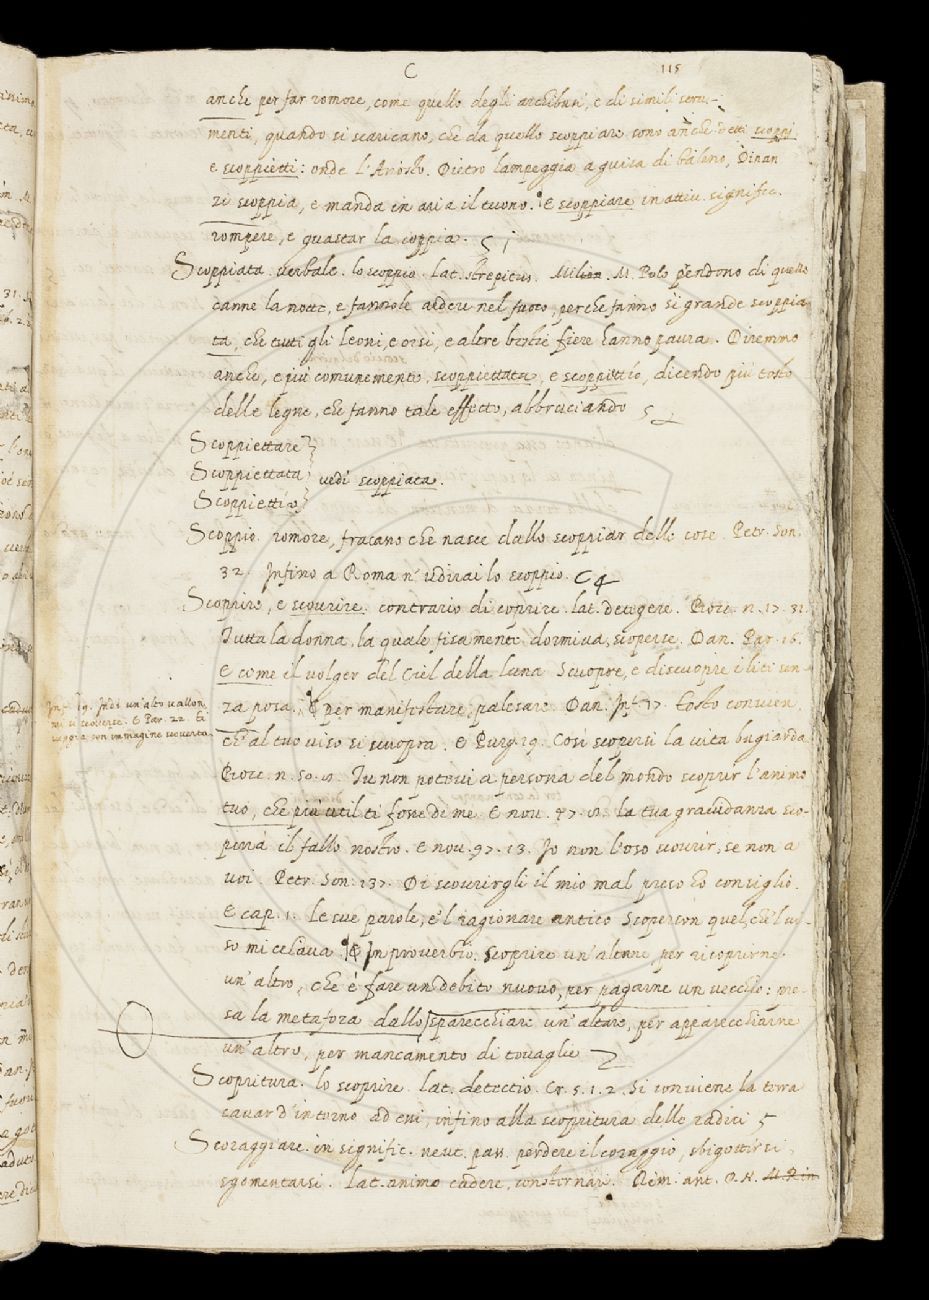 C 115
anche per far romore, come quello degli archibusi, e di simili stru-
menti, quando si scaricano, che da quello scoppiare sono anche detti scoppj
e scoppietti: onde l'Ariosto. Dietro lampeggia a guisa di baleno, Dinan
zi scoppia, e manda in aria il tuono. E scoppiare in attiu. signific.
rompere, e guastar la coppia.
Scoppiata. verbale. lo scoppio. lat. strepitus. Milion. M. Polo prendono di quelle
canne la notte, e fannole ardere nel fuoco, perche fanno sì grande scoppia
ta, che tutti gli leoni, e orsi, e altre bestie fiere hanno paura. Diremmo
anche, e più comunemente, scoppiettata, e scoppiettìo, dicendo più tosto
delle legne, che fanno tale effetto, abbruciando
Scoppiettare
Scoppiettata vedi scoppiata.
Scoppiettìo
Scoppio. romore, fracasso che nasce dallo scoppiar delle cose. Petr. Son.
32. Infino a Roma n'udirai lo scoppio.
Scoprire, e scourire. contrario di coprire. lat. detegere. Bocc. n. 17. 31.
Tutta la donna, la quale fisamente dormiua, scoperse. Dan. Par. 16.
E come il volger del Ciel della luna Scuopre, e discuopre i liti sen
za posa. E per manifestare, palesare. Dan. Inf. 17. Tosto convien,
Inf. 19. Indi un'altro vallon
mi si scoverse. E Par. 22.
con immagine scoverta
ch'al tuo viso si scuopra. E Purg. 19. Così scopersi la vita bugiarda
Bocc. n. 50. Tu non potevi a persona del mondo scoprir l'animo
tuo, che più util ti fosse di me. E nou. la tua grauidanza sco-
prirà il fallo nostro. E nou. 97. 13. Io non l'oso scourir, se non a
voi. Petr. Son. 137. Di scourirgli il mio mal preso ho consiglio.
E cap. 1. Le sue parole, e'l ragionare antico Scoperson quel, che'l ui-
so mi celaua. E In proverbio. Scoprire un'altare, per ricoprirne
un'altro, che è fare un debito nuovo, per pagarne un vecchio: me-
sa la metafora dallo sparecchiare un'altare, per apparecchiarne
un'altro, per mancamento di tovaglie
Scopritura. lo scoprire. lat. detectio. Cr. 5. 1. 2. Si conviene la terra
cavar d'intorno ad essi, infino alla scopritura delle radici
Scoraggiare. in signific. neut. pass. perdere il coraggio, sbigottirsi,
sgomentarsi. lat. animo cadere, consternari. Rim. ant.